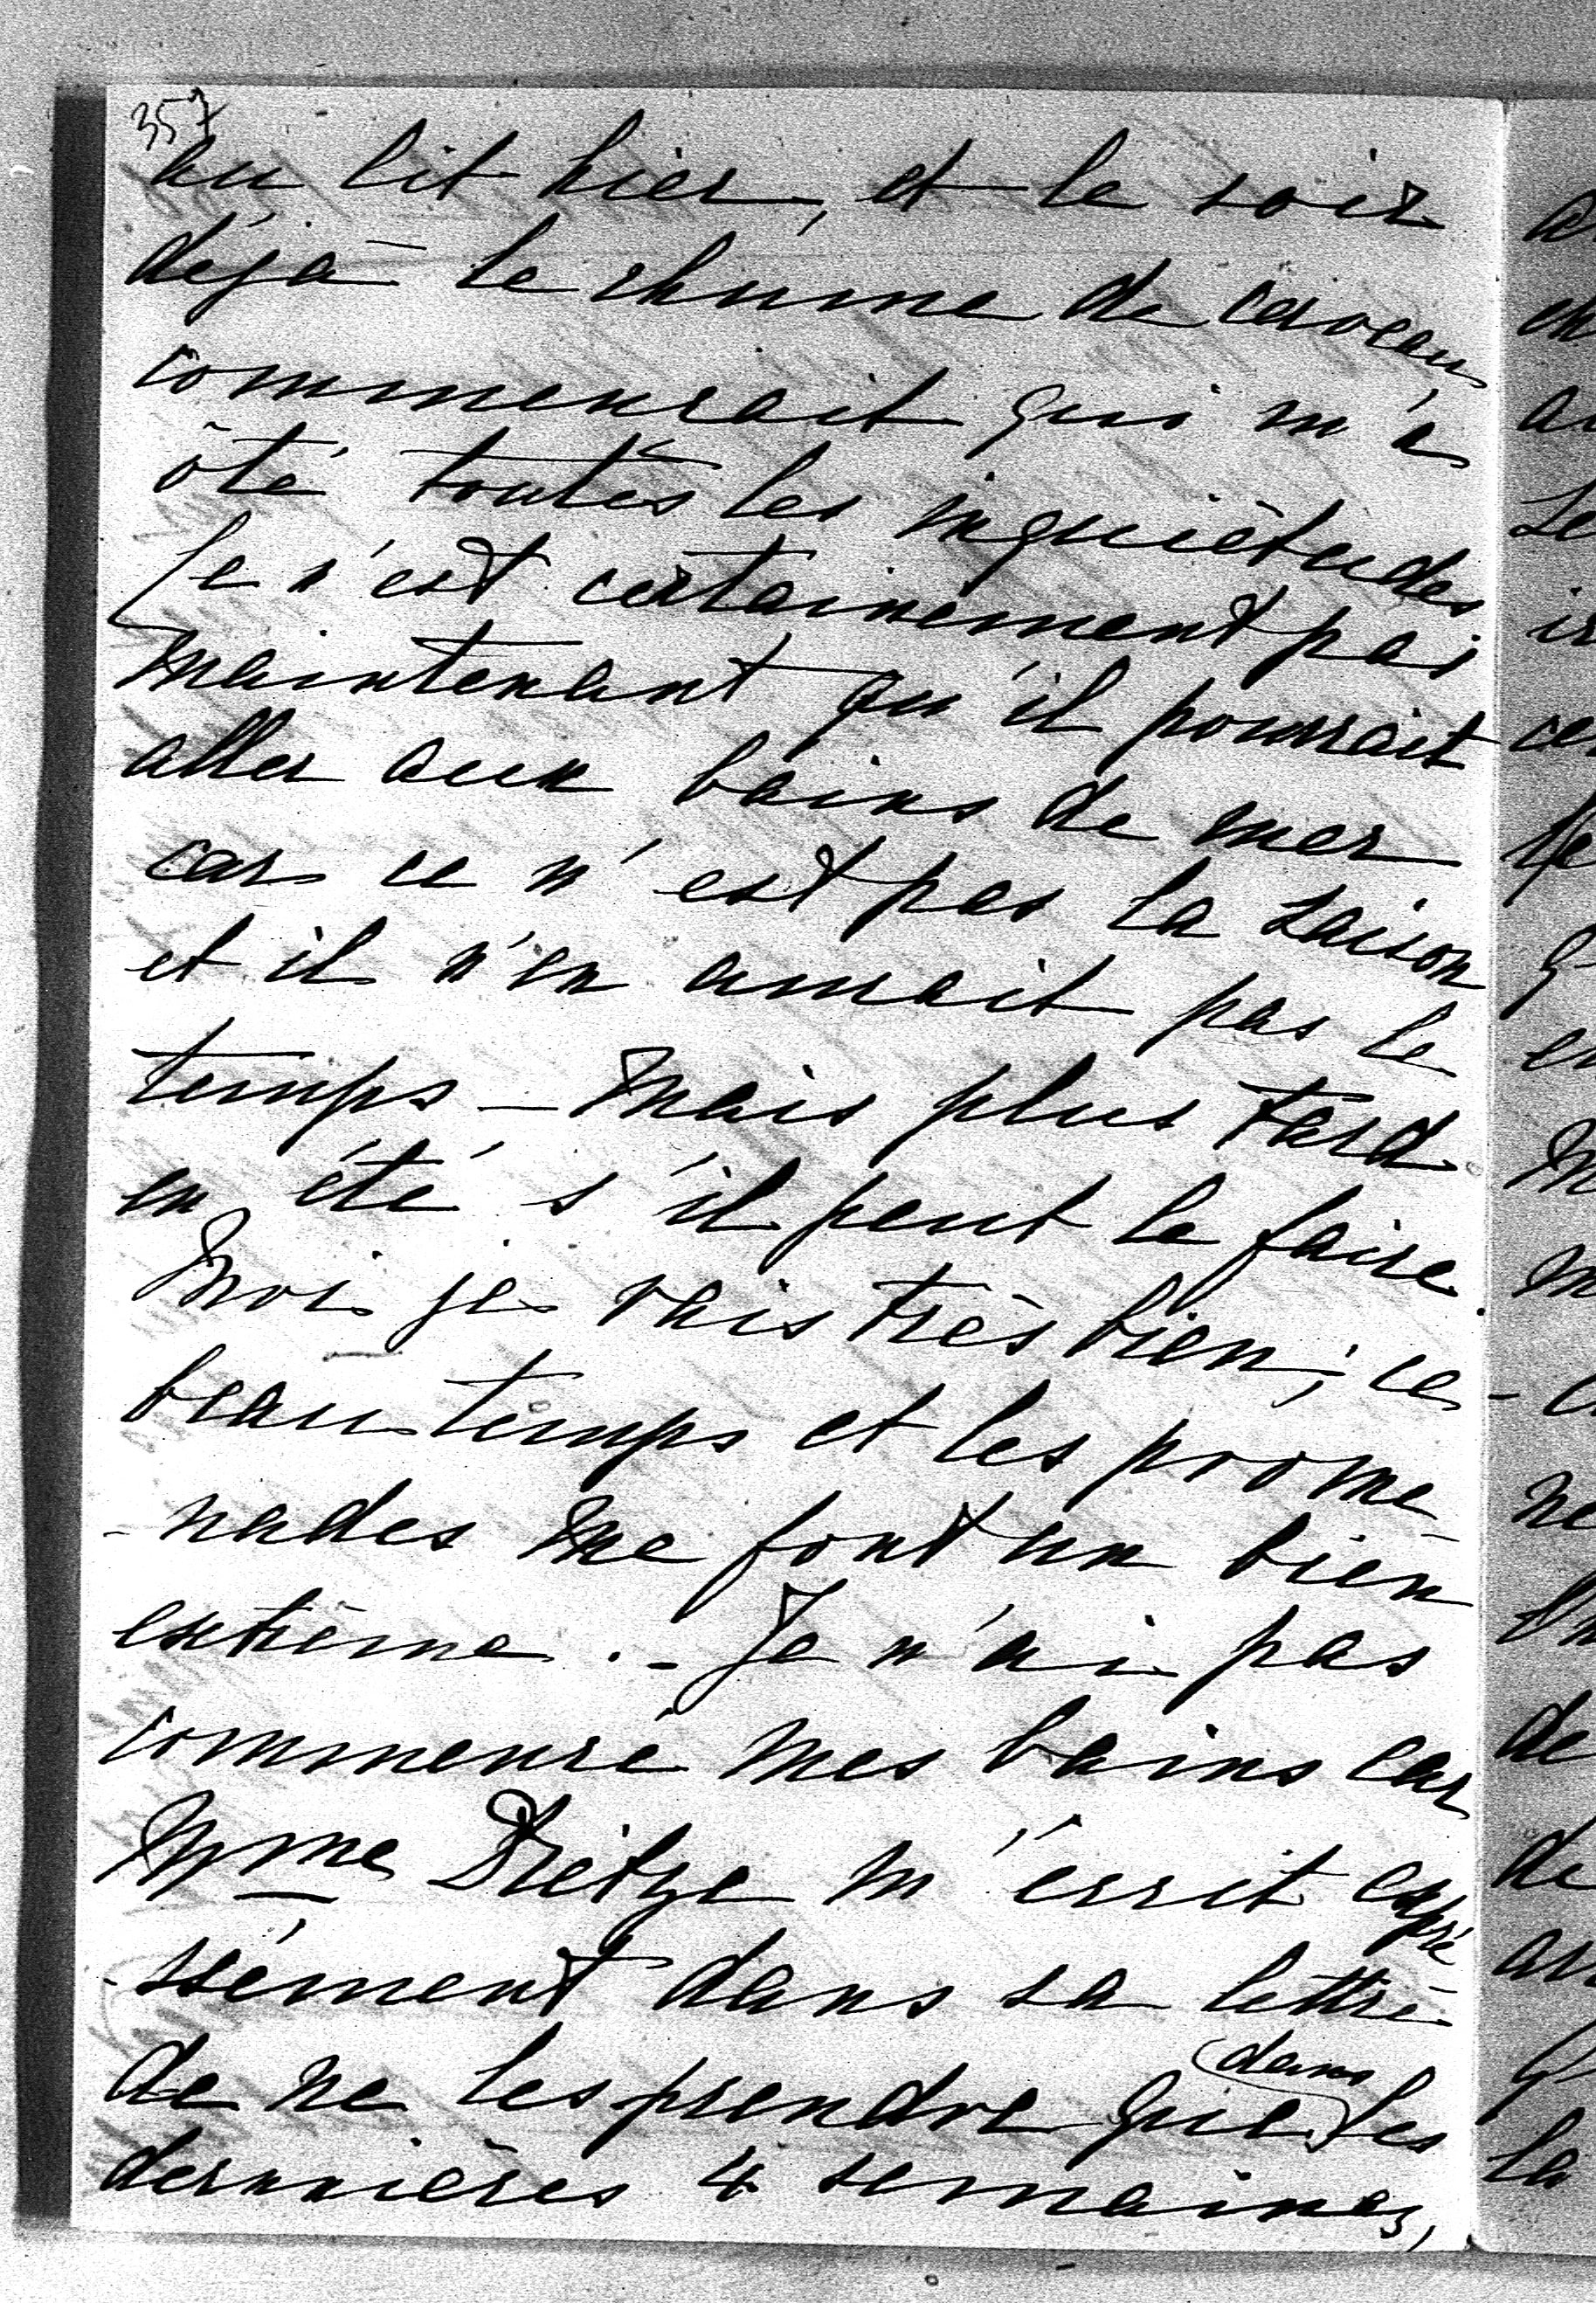 357
au lit hier, et le soir
déjà le rhume de cerveau
commençait qui m'a
ôté toutes les inquiétudes
Ce n'est certainement pas
maintenant qu'il pourrait
aller aux bains de mer
car ce n'est pas la saison
et il n'en aurait pas le
temps - Mais plus tard
en été s'il peut le faire.
Moi je vais très bien; ce
beau temps et les prome-
-nades me font un bien
extrême. - Je n'ai pas
commencé mes bains car
Mme Dietze m'écrit expré
-ssément dans sa lettre
de ne les prendre que dans les
dernières 4 semaines,